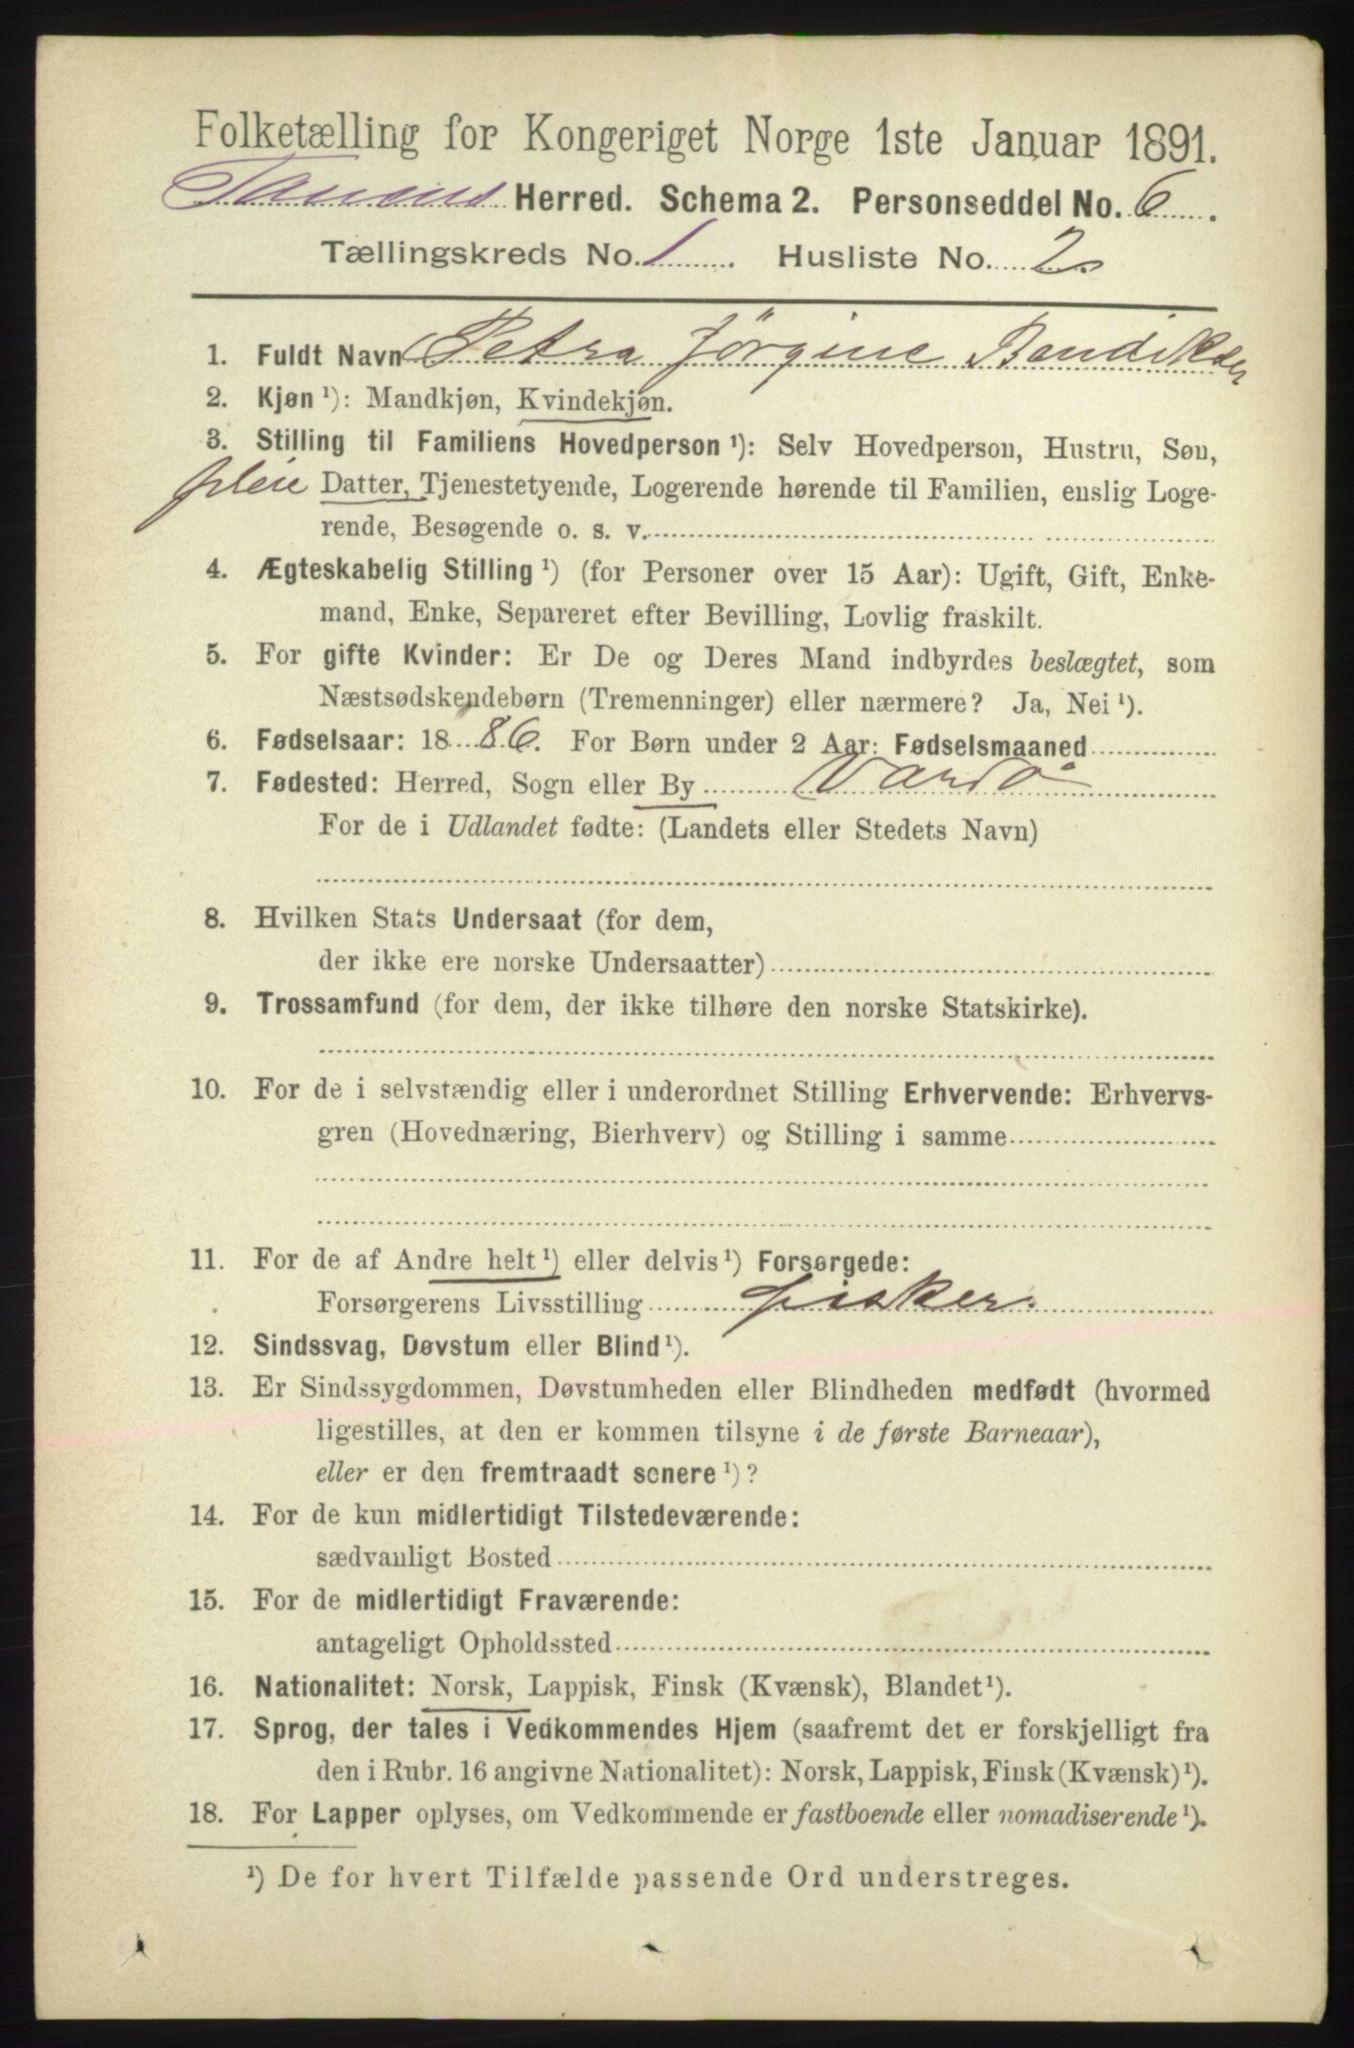 Folketælling for Kongeriget Norge 1ste Januar 1891.
Tanens Herred. Schema 2. Personseddel No. 6.
Tællingskreds No. 1. Husliste No. 2.
1. Fuldt Navn Petra Jørgine Bendiksen
2. Kjøn ¹): Mandkjøn, Kvindekjøn.
3. Stilling til Familiens Hovedperson ¹): Selv Hovedperson, Hustru, Søn,
pleie Datter, Tjenestetyende, Logerende hørende til Familien, enslig Loge-
rende, Besøgende o. s. v.
4. Ægteskabelig Stilling ¹) (for Personer over 15 Aar): Ugift, Gift, Enke-
mand, Enke, Separeret efter Bevilling, Lovlig fraskilt.
5. For gifte Kvinder: Er De og Deres Mand indbyrdes beslægtet, som
Næstsødskendebørn (Tremenninger) eller nærmere? Ja, Nei ¹).
6. Fødselsaar: 1886. For Børn under 2 Aar: Fødselsmaaned
7. Fødested: Herred, Sogn eller By Vardø
For de i Udlandet fødte: (Landets eller Stedets Navn)
8. Hvilken Stats Undersaat (for dem,
der ikke ere norske Undersaatter)
9. Trossamfund (for dem, der ikke tilhøre den norske Statskirke).
10. For de i selvstændig eller i underordnet Stilling Erhvervende: Erhvervs-
gren (Hovednæring, Bierhverv) og Stilling i samme
11. For de af Andre helt ¹) eller delvis ¹) Forsørgede:
Forsørgerens Livsstilling fisker.
12. Sindssvag, Døvstum eller Blind ¹).
13. Er Sindssygdommen, Døvstumheden eller Blindheden medfødt (hvormed
ligestilles, at den er kommen tilsyne i de første Barneaar),
eller er den fremtraadt senere ¹)?
14. For de kun midlertidigt Tilstedeværende:
sædvanligt Bosted
15. For de midlertidigt Fraværende:
antageligt Opholdssted
16. Nationalitet: Norsk, Lappisk, Finsk (Kvænsk), Blandet ¹).
17. Sprog, der tales i Vedkommendes Hjem (saafremt det er forskjelligt fra
den i Rubr. 16 angivne Nationalitet): Norsk, Lappisk, Finsk (Kvænsk) ¹).
18. For Lapper oplyses, om Vedkommende er fastboende eller nomadiserende ¹).
¹) De for hvert Tilfælde passende Ord understreges.